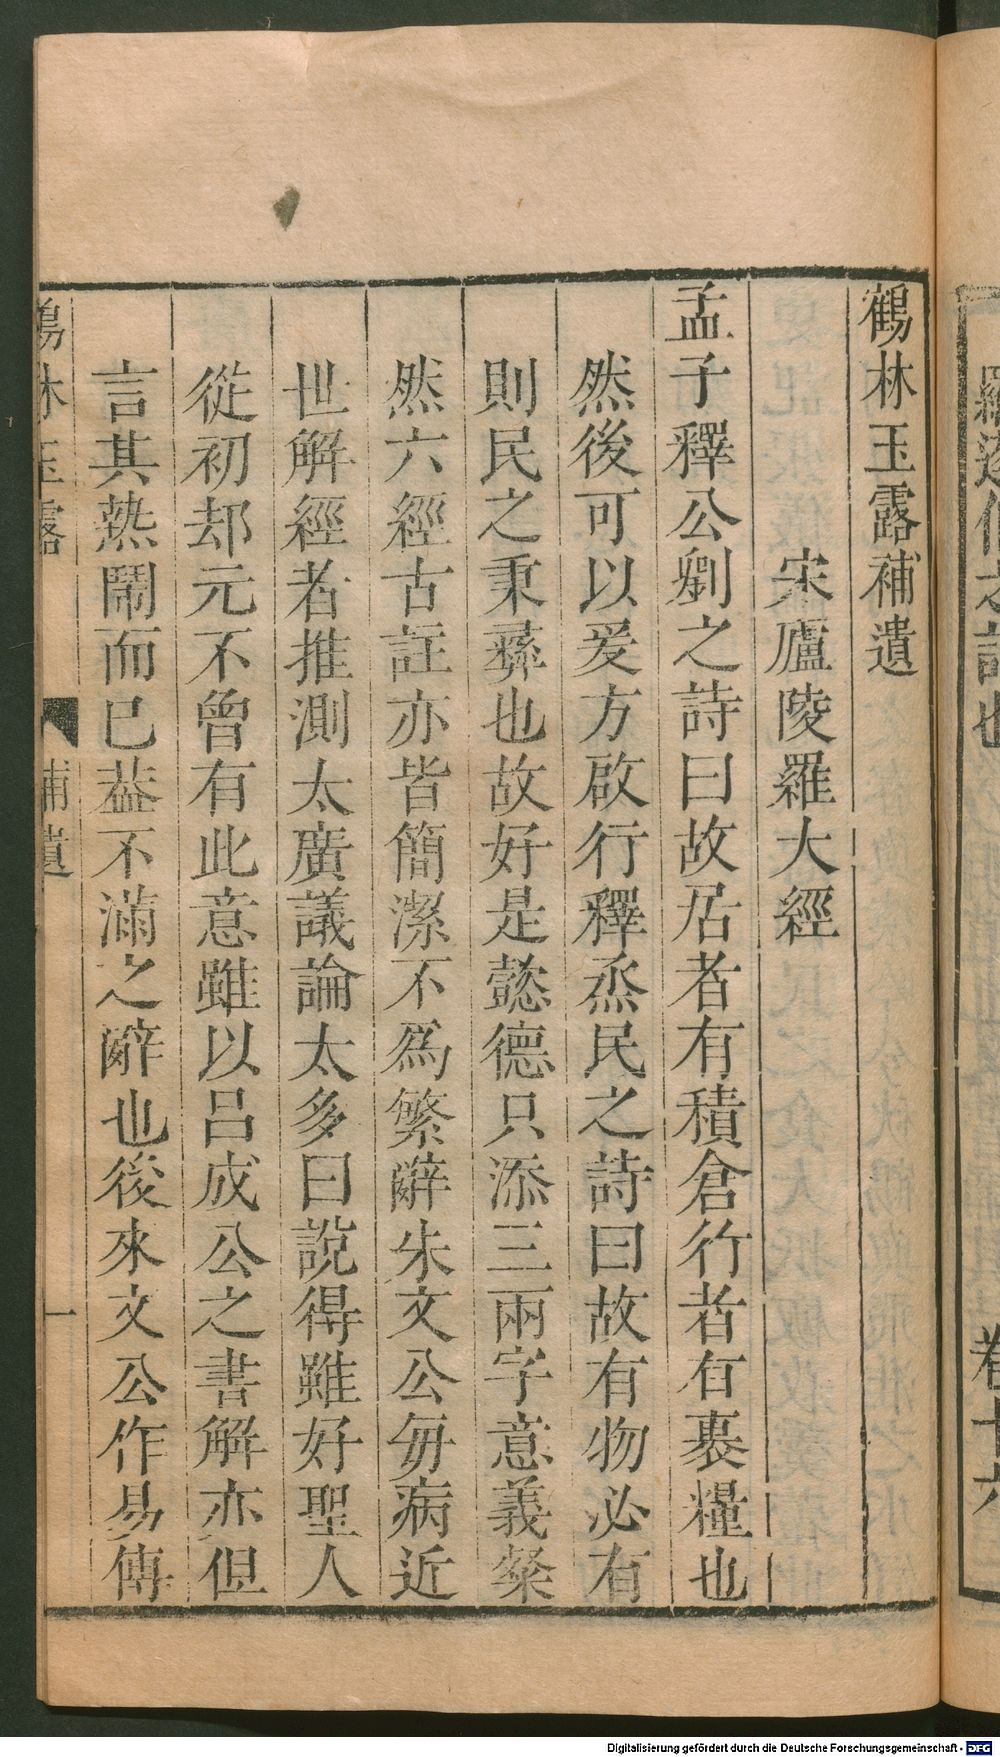 鶴林玉露補遺
宋廬陵羅大經
孟子釋公劉之詩曰故居者有積倉行者有裹糧也
然後可以爰方啟行釋烝民之詩曰故有物必有
則民之秉彞也故好是懿德只添三兩字意義粲
然六經古註亦皆簡潔不爲繁辭朱文公每病近
世解經者推測太廣議論太多曰說得雖好聖人
從初却元不曾有此意雖以呂成公之書解亦但
言其熱鬧而已葢不滿之辭也後來文公作易傳
鶴林玉露 補遺 一
Digitalisierung gefördert durch die Deutsche Forschungsgemeinschaft - DFG